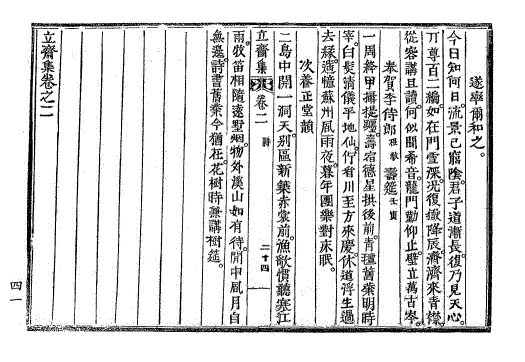 遂率爾和之。
今日知何日。流景已窮陰。君子道漸長。復乃見天心。
可尊百二編。如在門雪深。況復嶽降辰。濟濟來青襟。
從容講且讀。何似聞希音。龍門勤仰止。壁立萬古岑。
奉賀李侍郎 壽筵 壬寅
一周終甲攝提躔。壽宿德星拱後前。青氈舊業明時
宰。白髮清儀平地仙。行看川至方來慶。休道浮生過
去緣。遙憶蘇州風雨夜。暮年團樂對床眠。
次養正堂韻
二島中開一洞天。別區新築赤裳前。漁歌慣聽寒江
立齋集 卷二 詩 二十四
雨。牧笛相隨遠墅烟。物外溪山如有待。閒中風月自
無邊。詩書舊業今猶在。花樹時兼講樹筵。
立齋集卷之二
四一